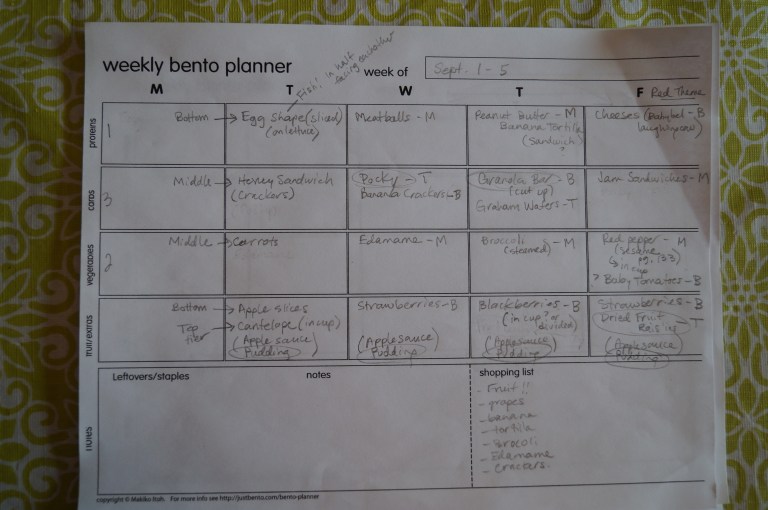 Fish! in half
facing eachother
weekly bento planner
week of
Sept. 1-5
M T W T F
Red Theme
proteins
1
Bottom → Egg shape (sliced)
(on lettuce)
Meatballs - M
Peanut Butter - M
Banana Tortilla
(Sandwich)
?
Cheeses (Babybel - B
laughing cow)
carbs
3
Middle → Honey Sandwich
(Crackers)
Pocky - T
Banana Crackers - B
Granola Bar - B
(cut up)
Graham Wafers - T
Jam Sandwiches - M
vegetables
2
Middle → Carrots
Edamame - M
Broccoli - M
(steamed)
Red pepper - M
(sesame
pg. 133)
in cup
? Baby Tomatoes - B
fruit/extras
Bottom → Apple slices
Top tier → Cantelope (in cup)
(Apple sauce)
Pudding
Strawberries - B
(Applesauce)
Pudding
Blackberries - B
(in cup? or
divider)
(Applesauce)
Pudding
Strawberries - B
Dried Fruit
Raisins T
(Applesauce)
Pudding
notes
Leftovers/staples
notes
shopping list
- Fruit!!
- grapes
- banana
- tortilla
- Brocoli
- Edamame
- Crackers.
copyright © Makiko Itoh. For more info see http://justbento.com/bento-planner